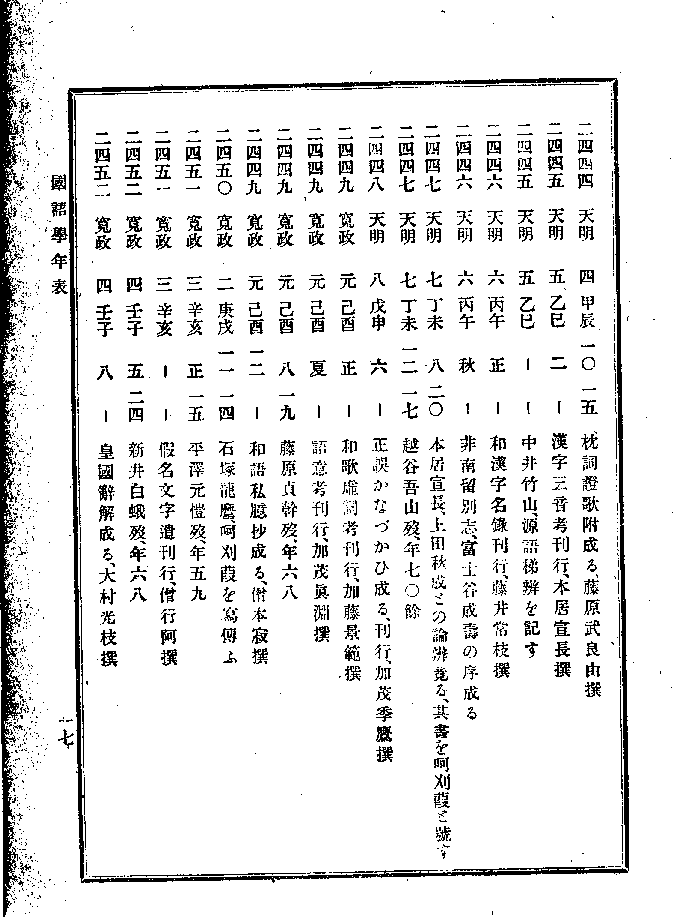 二四四四 天明 四 甲辰 一〇 一五 枕詞證歌附成る、藤原武良由撰
二四四五 天明 五 乙巳 二 ー 漢字三音考刊行、本居宣長撰
二四四五 天明 五 乙巳 ー ー 中井竹山、源語梯辨を記す
二四四六 天明 六 丙午 正 ー 和漢字名錄刊行、藤井常枝撰
二四四六 天明 六 丙午 秋 ー 非南留別志、富士谷成壽の序成る
二四四七 天明 七 丁未 八 二〇 本居宣長、上田秋成との論辨竟る、其書を呵刈葭と號す
二四四七 天明 七 丁未 一二 一七 越谷吾山歿、年七〇餘
二四四八 天明 八 戊申 六 ー 正誤かなづかひ成る、刊行、加茂季鷹撰
二四四九 寬政 元 己酉 正 ー 和歌虛詞考刊行、加藤景範撰
二四四九 寬政 元 己酉 夏 ー 語意考刊行、加茂眞淵撰
二四四九 寬政 元 己酉 八 一九 藤原貞幹歿、年六八
二四四九 寬政 元 己酉 一二 ー 和語私臆抄成る、僧本寂撰
二四五〇 寬政 二 庚戌 一一 一四 石塚龍麿、呵刈葭を寫傳ふ
二四五一 寬政 三 辛亥 正 一五 平澤元愷歿、年五九
二四五一 寬政 三 辛亥 ー ー 假名文字遣刊行、僧行阿撰
二四五二 寬政 四 壬子 五 二四 新井白蛾歿、年六八
二四五二 寬政 四 壬子 八 ー 皇國辭解成る、大村光枝撰
國語學年表
一七